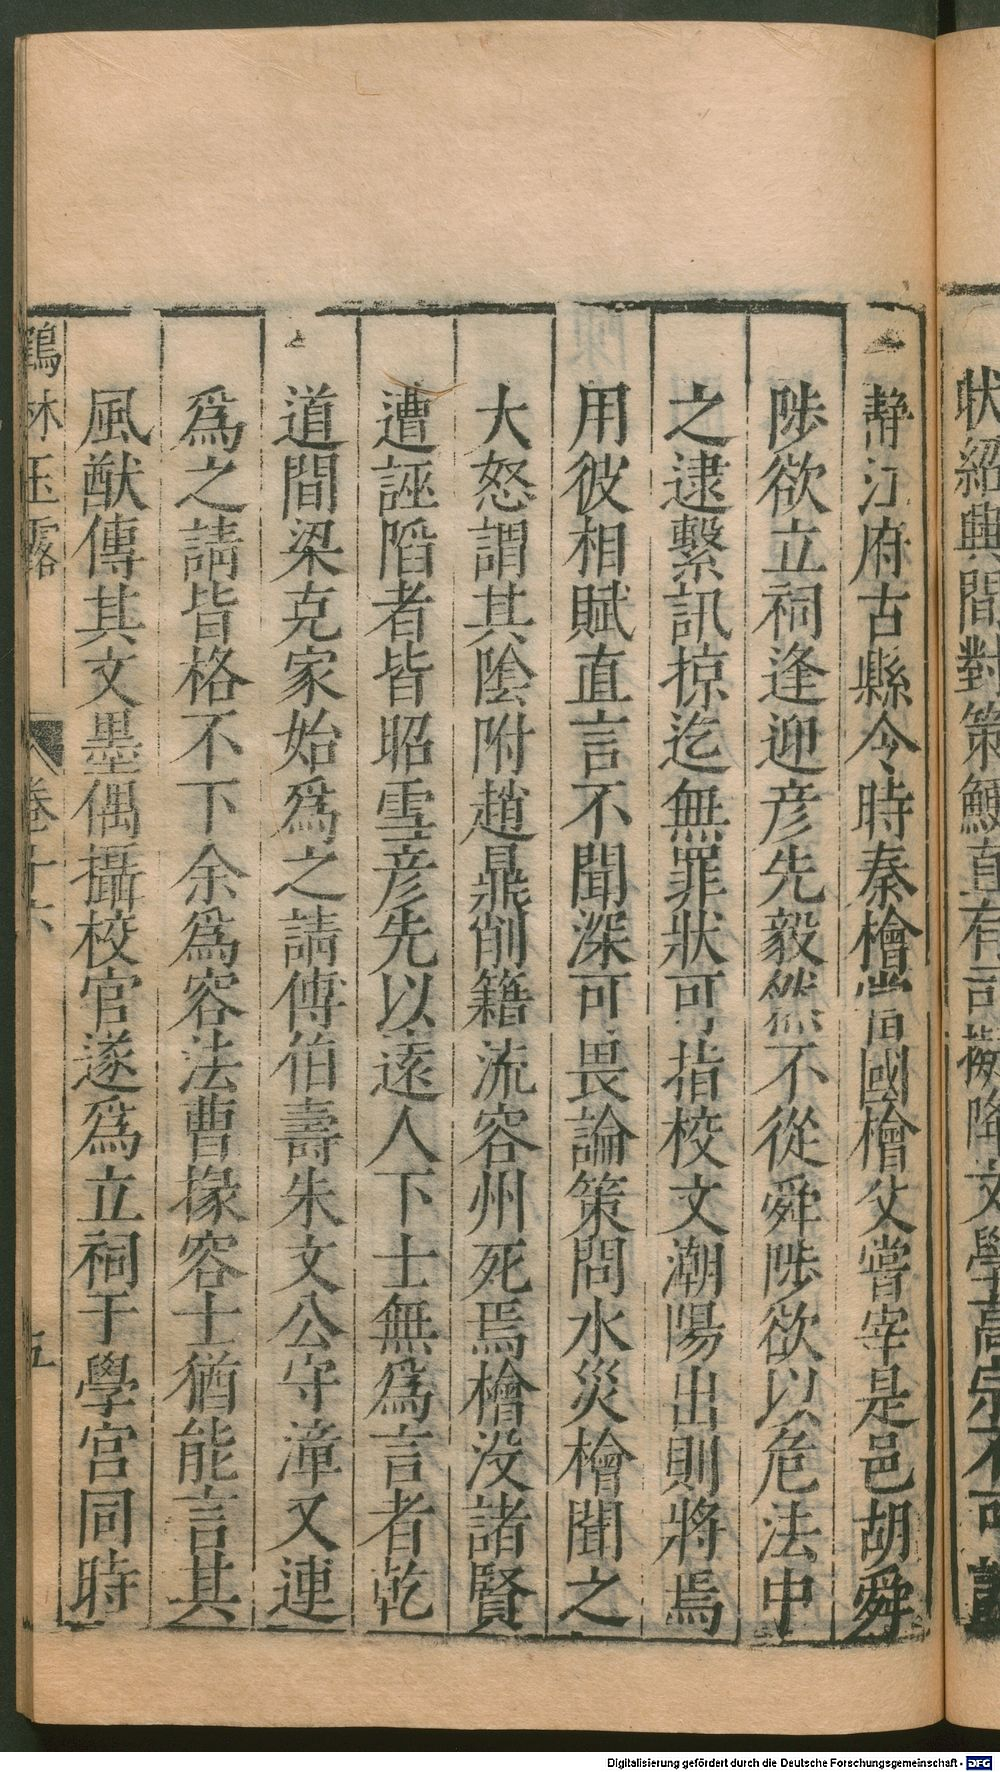 狀紹興間對策鯁直有司擬降文學高宗不可
靜江府古縣令時秦檜當國檜父嘗宰是邑胡舜
陟欲立祠逢迎彦先毅然不從舜陟欲以危法中
之逮繫訊掠迄無罪狀可指校文潮陽出則將焉
用彼相賦直言不聞深可畏論策問水災檜聞之
大怒謂其陰附趙鼎削籍流容州死焉檜没諸賢
遭誣陷者皆昭雪彦先以遠人下士無爲言者乾
道間梁克家始爲之請傅伯壽朱文公守漳又連
爲之請皆格不下余爲容法曹掾容士猶能言其
風猷傳其文墨偶攝校官遂爲立祠于學宫同時
鶴林玉露 卷十六 五
Digitalisierung gefördert durch die Deutsche Forschungsgemeinschaft - DFG